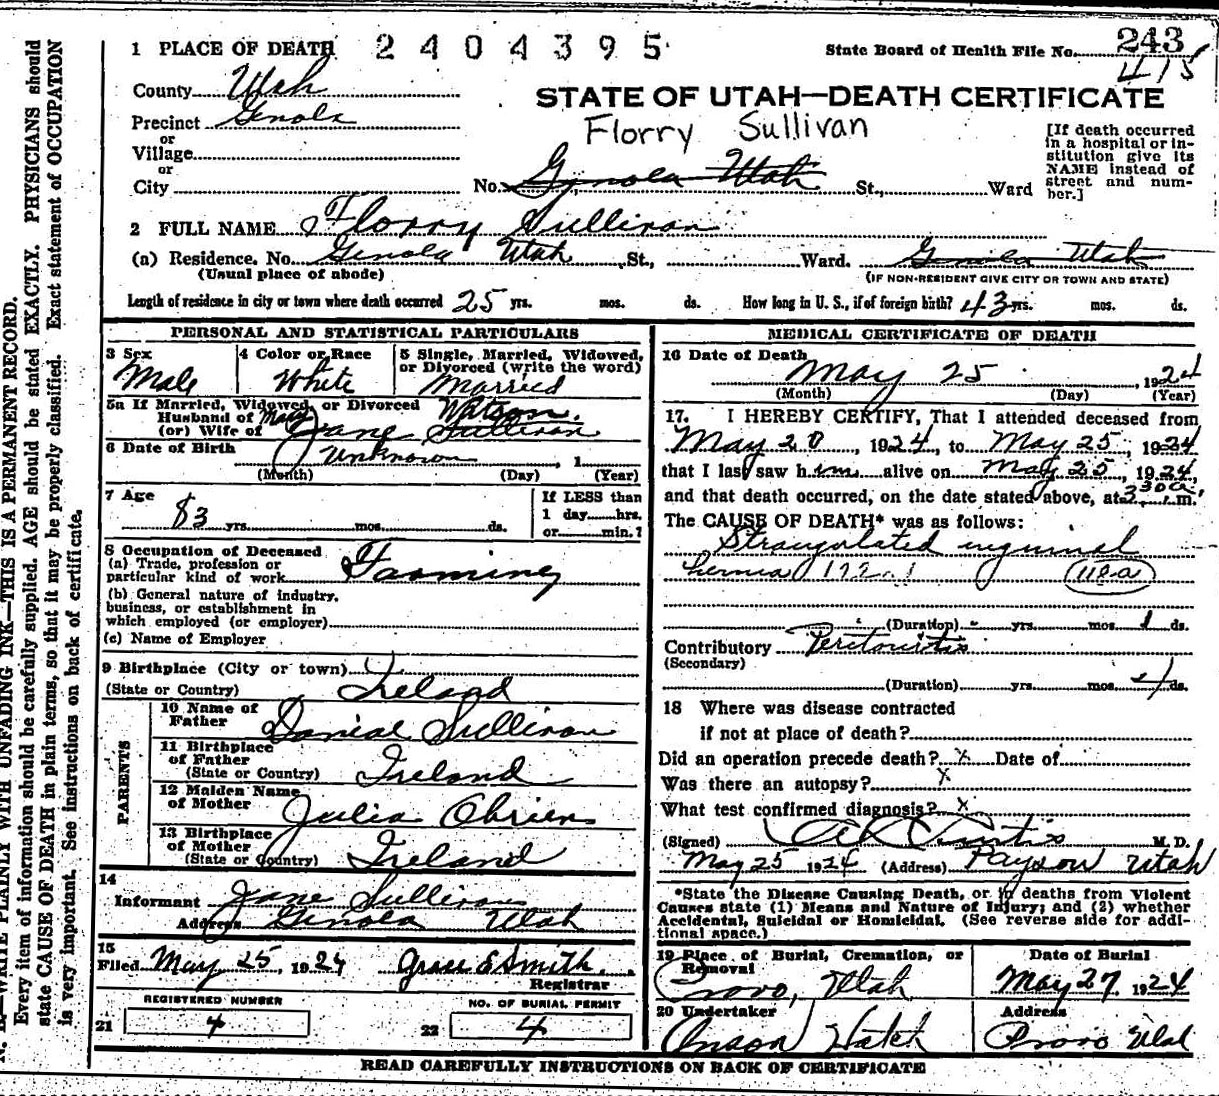 1 PLACE OF DEATH 2404395 State Board of Health File No. 243
415
County Utah
STATE OF UTAH—DEATH CERTIFICATE
Precinct Genola
Florry Sullivan
or
Village
or
City No. Genola Utah St., Ward
[If death occurred
in a hospital or in-
stitution give its
NAME instead of
street and num-
ber.]
2 FULL NAME Florry Sullivan
(a) Residence. No. Genola Utah St., Ward. Genola Utah
(Usual place of abode) (IF NON-RESIDENT GIVE CITY OR TOWN AND STATE)
Length of residence in city or town where death occurred 25 yrs. mos. ds. How long in U. S., if of foreign birth? 43 yrs. mos. ds.
PERSONAL AND STATISTICAL PARTICULARS
3 Sex
Male
4 Color or Race
White
5 Single, Married, Widowed,
or Divorced (write the word)
Married
5a If Married, Widowed or Divorced
Husband of
(or) Wife of Mary Jane Watson Sullivan
6 Date of Birth Unknown , 1
(Month) (Day) (Year)
7 Age
83 yrs. mos. ds.
If LESS than
1 day hrs.
or min.?
8 Occupation of Deceased
(a) Trade, profession or
particular kind of work Farming
(b) General nature of industry,
business, or establishment in
which employed (or employer)
(c) Name of Employer
9 Birthplace (City or town)
(State or Country) Ireland
PARENTS
10 Name of
Father Danial Sullivan
11 Birthplace
of Father
(State or Country) Ireland
12 Maiden Name
of Mother Julia Obriens
13 Birthplace
of Mother
(State or Country) Ireland
14
Informant Jane Sullivan
Address Genola Utah
15
Filed May 25, 1924 Grace E Smith
Registrar
REGISTERED NUMBER NO. OF BURIAL PERMIT
21 4 22 4
MEDICAL CERTIFICATE OF DEATH
16 Date of Death
May 25 , 1924
(Month) (Day) (Year)
17. I HEREBY CERTIFY, That I attended deceased from
May 20, 1924, to May 25, 1924
that I last saw him alive on May 25, 1924,
and that death occurred, on the date stated above, at 330a m.
The CAUSE OF DEATH* was as follows:
Strangolated inguinal
hernia 118a
(Duration) yrs. mos. 1 ds.
Contributory Peritonitis
(Secondary)
(Duration) yrs. mos. 4 ds.
18 Where was disease contracted
if not at place of death?
Did an operation precede death? x Date of
Was there an autopsy? x
What test confirmed diagnosis? x
(Signed) Curtis M. D.
May 25 1924 (Address) Payson Utah
*State the Disease Causing Death, or in deaths from Violent
Causes state (1) Means and Nature of Injury; and (2) whether
Accidental, Suicidal or Homicidal. (See reverse side for addi-
tional space.)
19 Place of Burial, Cremation, or
Removal
Provo, Utah
Date of Burial
May 27, 1924
20 Undertaker
Anson Hatch
Address
Provo Utah
READ CAREFULLY INSTRUCTIONS ON BACK OF CERTIFICATE
N. B.—WRITE PLAINLY WITH UNFADING INK—THIS IS A PERMANENT RECORD.
Every item of information should be carefully supplied. AGE should be stated EXACTLY. PHYSICIANS should
state CAUSE OF DEATH in plain terms, so that it may be properly classified. Exact statement of OCCUPATION
is very important. See instructions on back of certificate.